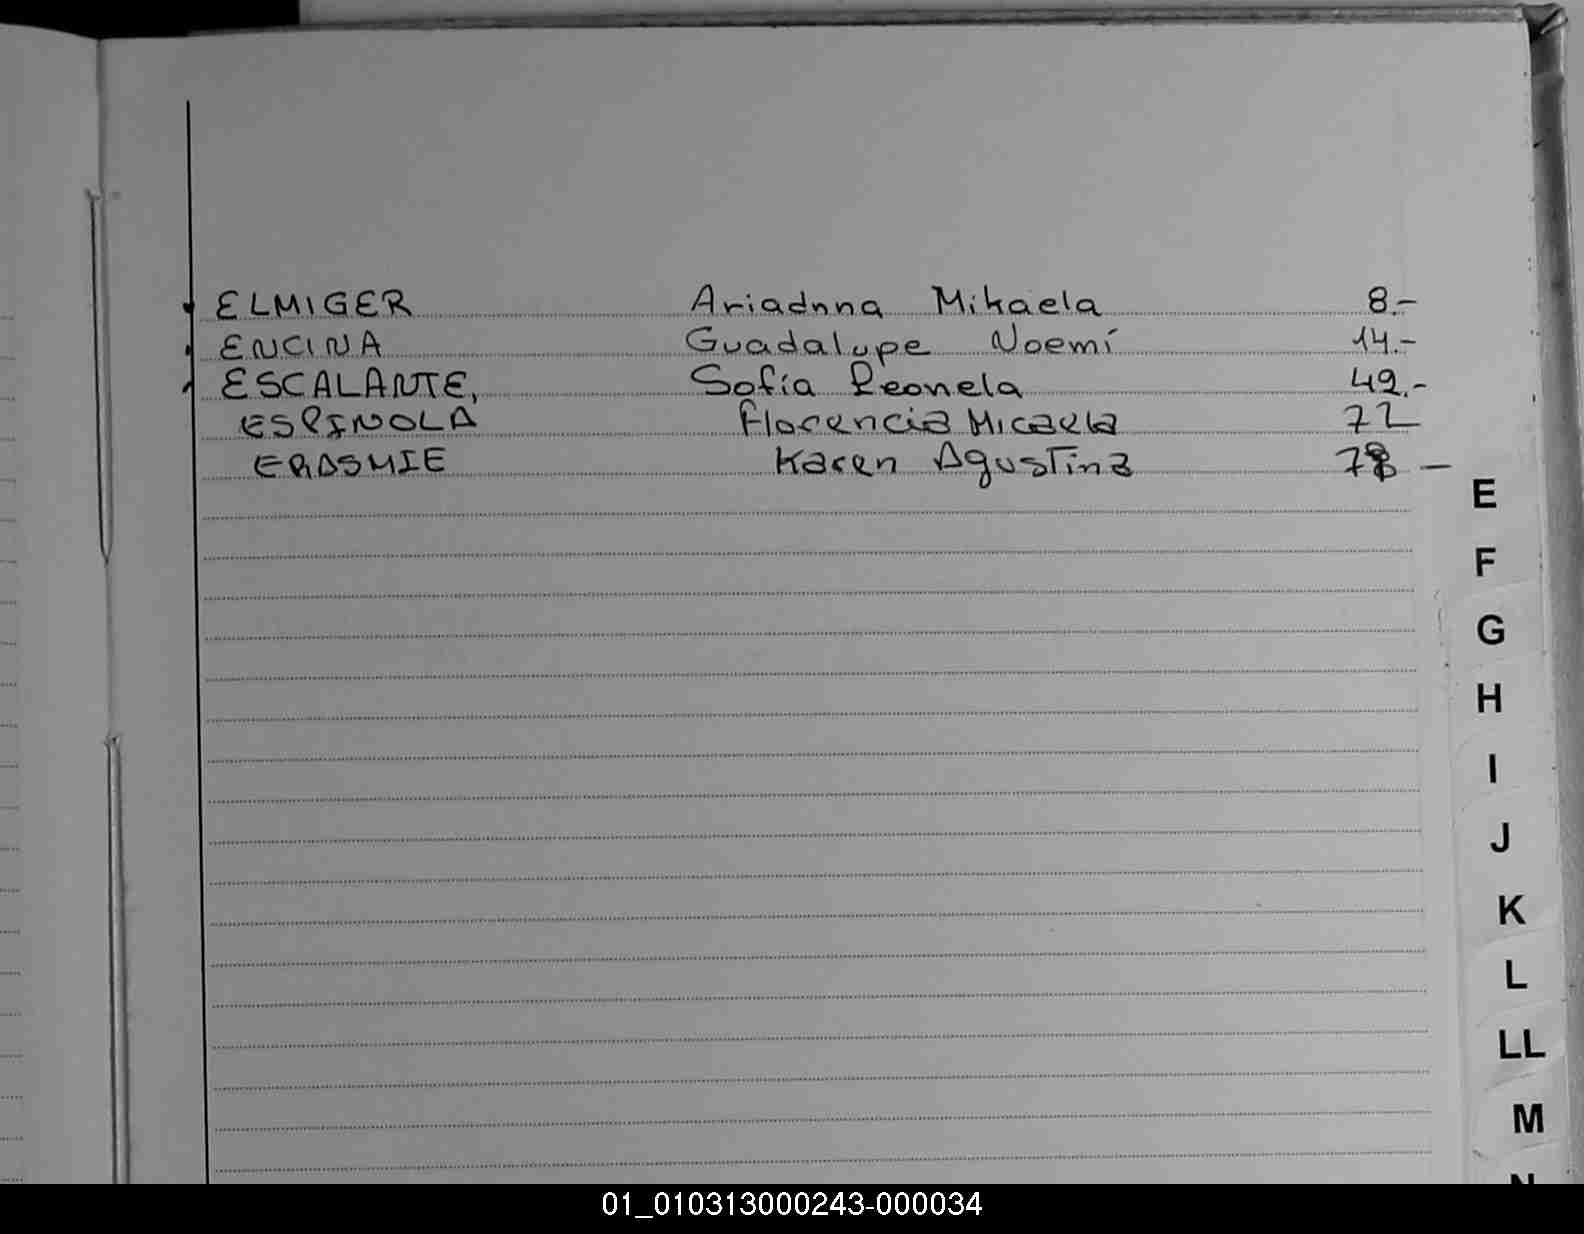 ELMIGER Ariadnna Mikaela 8.-
ENCINA Guadalupe Noemí 14.-
ESCALANTE, Sofía Leonela 49.-
ESPINOLA Florencia Micaela 72
ERASMIE Karen Agustina 78 —
E
F
G
H
I
J
K
L
LL
M
N
01_010313000243-000034